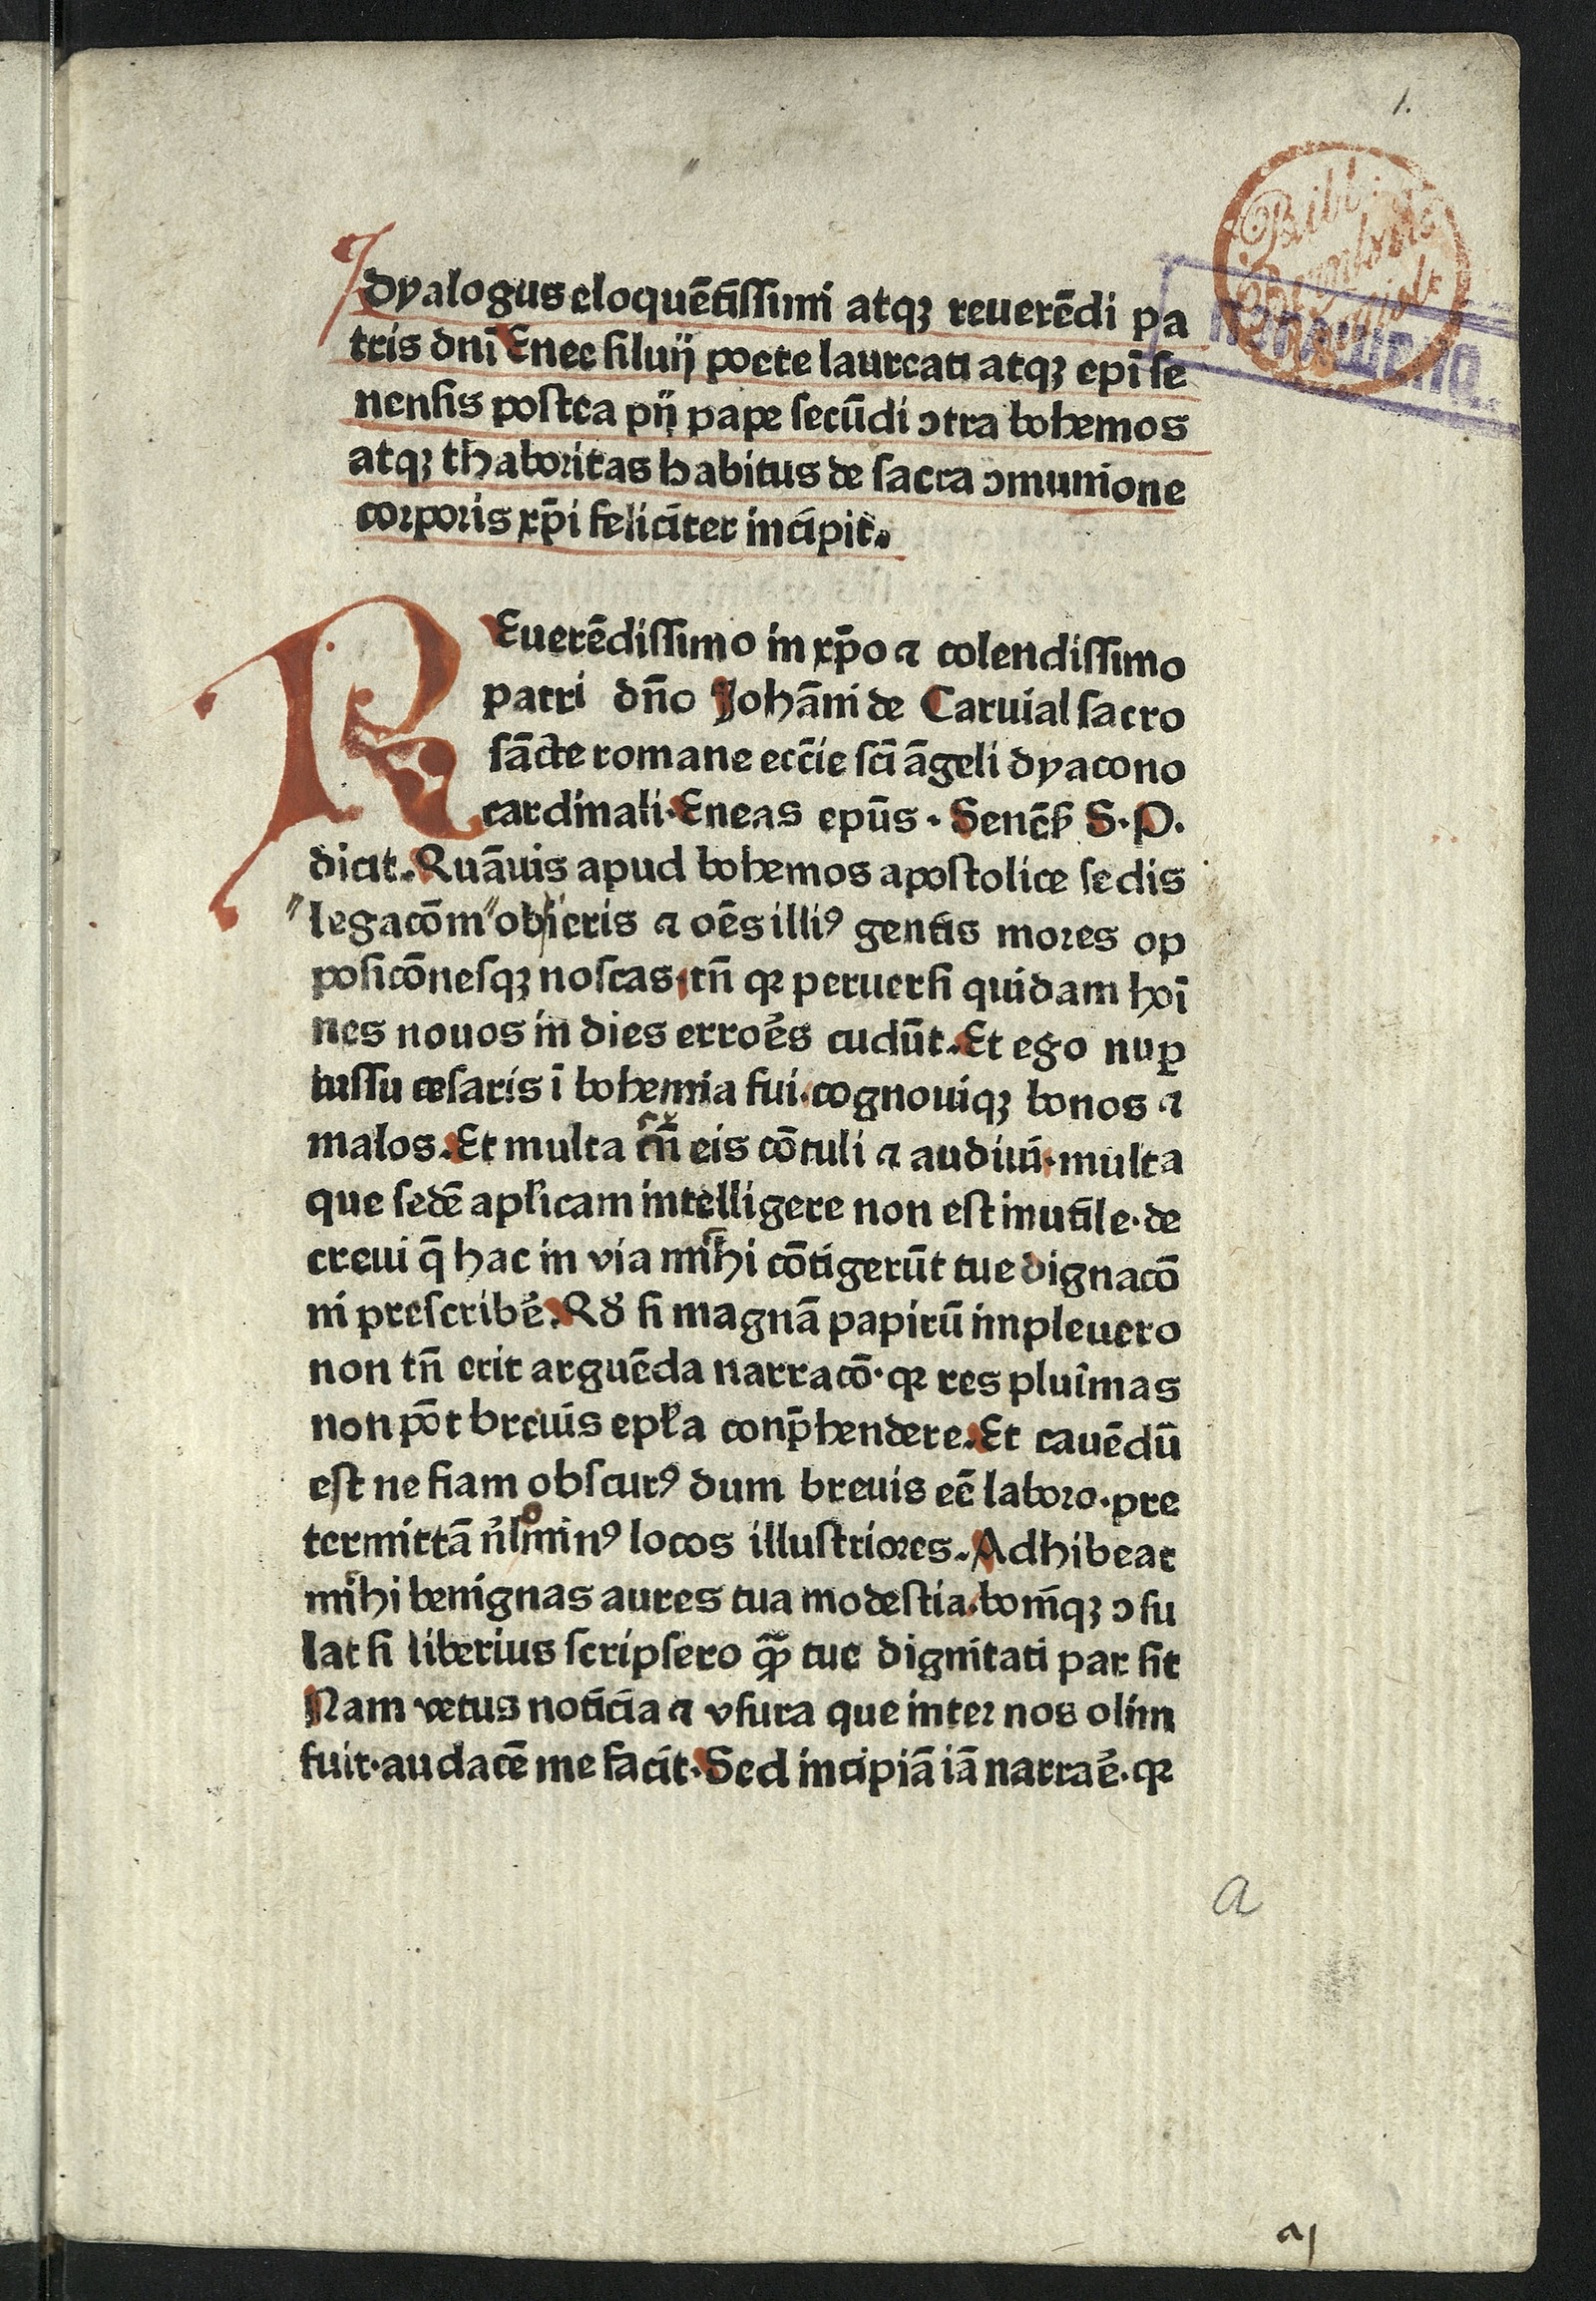 1.
dyalogus eloquētissimi atqꝫ reuerēdi pa
tris dnī Enee siluij poete laureati atqꝫ epī se
nensis postea pij pape secūdi ↄtra bohemos
atqꝫ thaboritas habitus de sacra ↄmunione
corporis xp̄i feliciter incipit.
REuerēdissimo in xp̄o ⁊ colendissimo
patri dn̄o Johāni de Caruial sacro
sācte romane eccīe scī āgeli dyacono
cardinali·Eneas epūs· Senēs̄ S·P·
dicit.Quāuis apud bohemos apostolice sedis
legacōm obieris ⁊ oēs illiꝰ gentis mores op
posicōnesqꝫ noscas·tn̄ qꝛ peruersi quidam hoī
nes nouos in dies erroēs cudūt.Et ego nuꝑ
iussu cesaris ī bohemia fui.cognouiqꝫ bonos ⁊
malos.Et multa cū eis cōtuli ⁊ audiui·multa
que sedē aplicam intelligere non est inutile·de
creui q̄ hac in via mihi cōtigerūt tue dignacō
ni prescribē.Qd si magnā papirū impleuero
non tn̄ erit arguēda narracō·qꝛ res pluīmas
non pōt breuis epła conp̄hendere.Et cauēdū
est ne fiam obscurꝰ dum breuis eē laboro·pre
termittā nlominꝰ locos illustriores.Adhibeat
mihi benignas aures tua modestia.bom̄qꝫ ↄsu
lat si liberius scripsero qꝫ̄ tue dignitati par sit
Nam vetus noticia ⁊ vsura que inter nos olim
fuit·audacē me facit·Sed incipiā iā narraē·qꝛ
a
a j